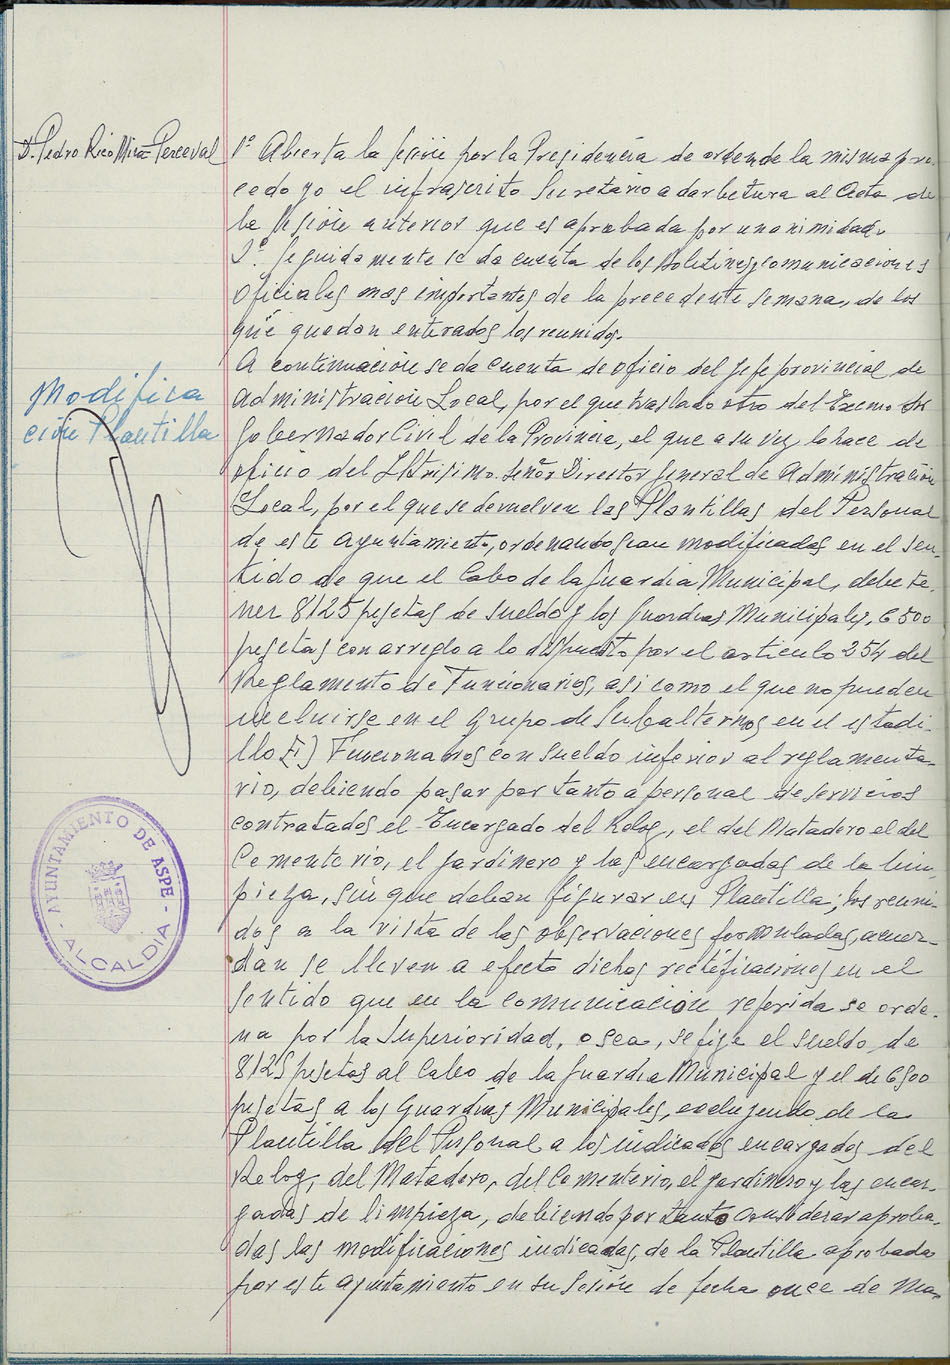 D. Pedro Rico Mira-Perceval
1º Abierta la sesión por la Presidencia de orden de la misma pro-
cedo yo el infrascrito Secretario a dar lectura al Acta de
la sesión anterior que es aprobada por unanimidad.
2º. Seguidamente se da cuenta de los Boletines y comunicaciones
Oficiales mas importantes de la precedente semana, de los
que quedan enterados los reunidos.
Modifica
ción Plantilla
A continuación se da cuenta de oficio del Jefe provincial de
Administración Local, por el que traslada otro del Excmo Sr
Gobernador Civil de la Provincia, el que a su vez, lo hace de
oficio del Iltrisimo. Señor Director General de Administración
Local, por el que se devuelven las Plantillas del Personal
de este Ayuntamiento, ordenando sean modificadas en el sen-
tido de que el Cabo de la Guardia Municipal, debe te-
ner 8125 pesetas de sueldo y los Guardias Municipales, 6500
pesetas con arreglo a lo dispuesto por el articulo 254 del
Reglamento de Funcionarios, asi como el que no pueden
incluirse en el Grupo de Subalternos en el estadi-
llo I) Funcionarios con sueldo inferior al reglamenta-
rio, debiendo pasar por tanto a personal de servicios
contratados el Encargado del Reloj, el del Matadero el del
Cementerio, el jardinero y las encargadas de la lim-
pieza, sin que deban figurar en Plantilla; los reuni-
dos a la vista de las observaciones formuladas, acuer-
dan se lleven a efecto dichas rectificaciones en el
sentido que en la comunicación referida se orde-
na por la Superioridad, o sea, se fije el sueldo de
8125 pesetas al Cabo de la Guardia Municipal y el de 6500
pesetas a los Guardias Municipales, excluyendo de la
Plantilla del Personal a los indicados encargados del
Reloj, del Matadero, del Cementerio, el jardinero y las encar-
gadas de limpieza, debiendo por tanto considerar aproba-
das las modificaciones indicadas, de la Plantilla aprobada
por este Ayuntamiento en su Sesión de fecha once de Ma-
- AYUNTAMIENTO DE ASPE -
ALCALDIA